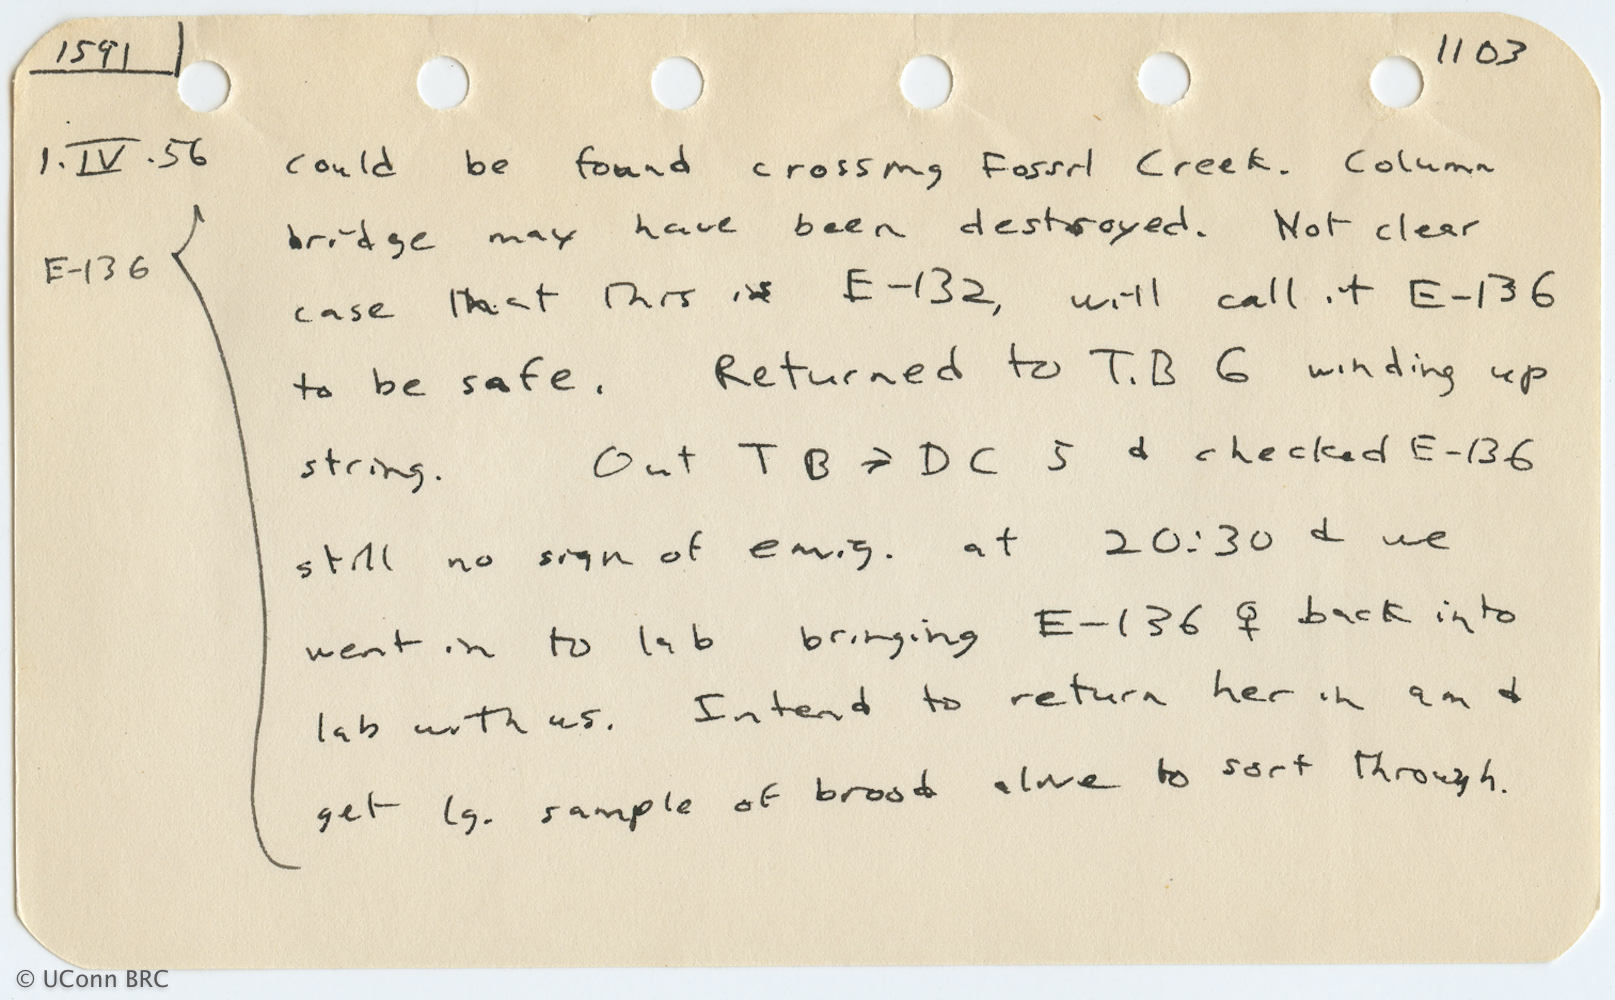 1591
1103
1.IV.56 could be found crossing Fossil Creek. Column
bridge may have been destroyed. Not clear
E-136
case that this is E-132, will call it E-136
to be safe. Returned to T.B 6 winding up
string. Out T B → D C 5 & checked E-136
still no sign of emig. at 20:30 & we
went in to lab bringing E-136 ♀ back into
lab with us. Intend to return her in am &
get lg. sample of brood alive to sort through.
© UConn BRC